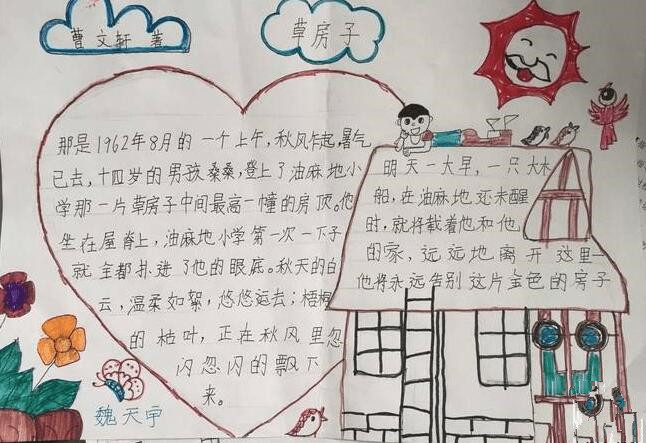 曹文轩 著
草房子
那是1962年8月的一个上午,秋风乍起,暑气
已去,十四岁的男孩桑桑,登上了油麻地小
学那一片草房子中间最高一幢的房顶。他
坐在屋脊上,油麻地小学第一次一下子
就全都扑进了他的眼底。秋天的白
云,温柔如絮,悠悠远去;梧桐
的枯叶,正在秋风里忽
闪忽闪的飘下
来。
明天一大早,一只大木
船,在油麻地还未醒
时,就将载着他和他
的家,远远地离开这里—
他将永远告别这片金色的房子
魏天宇